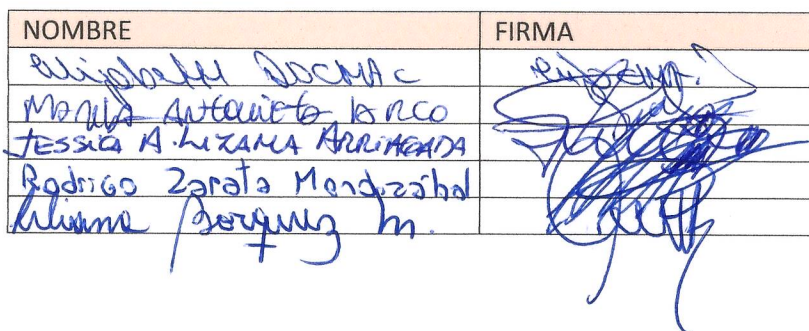 NOMBRE FIRMA
Elizabeth
María Antonieta
JESSICA A. LIZAMA ARRIAGADA
Rodrigo Zarate Mendizábal
Liliana Borquez M.